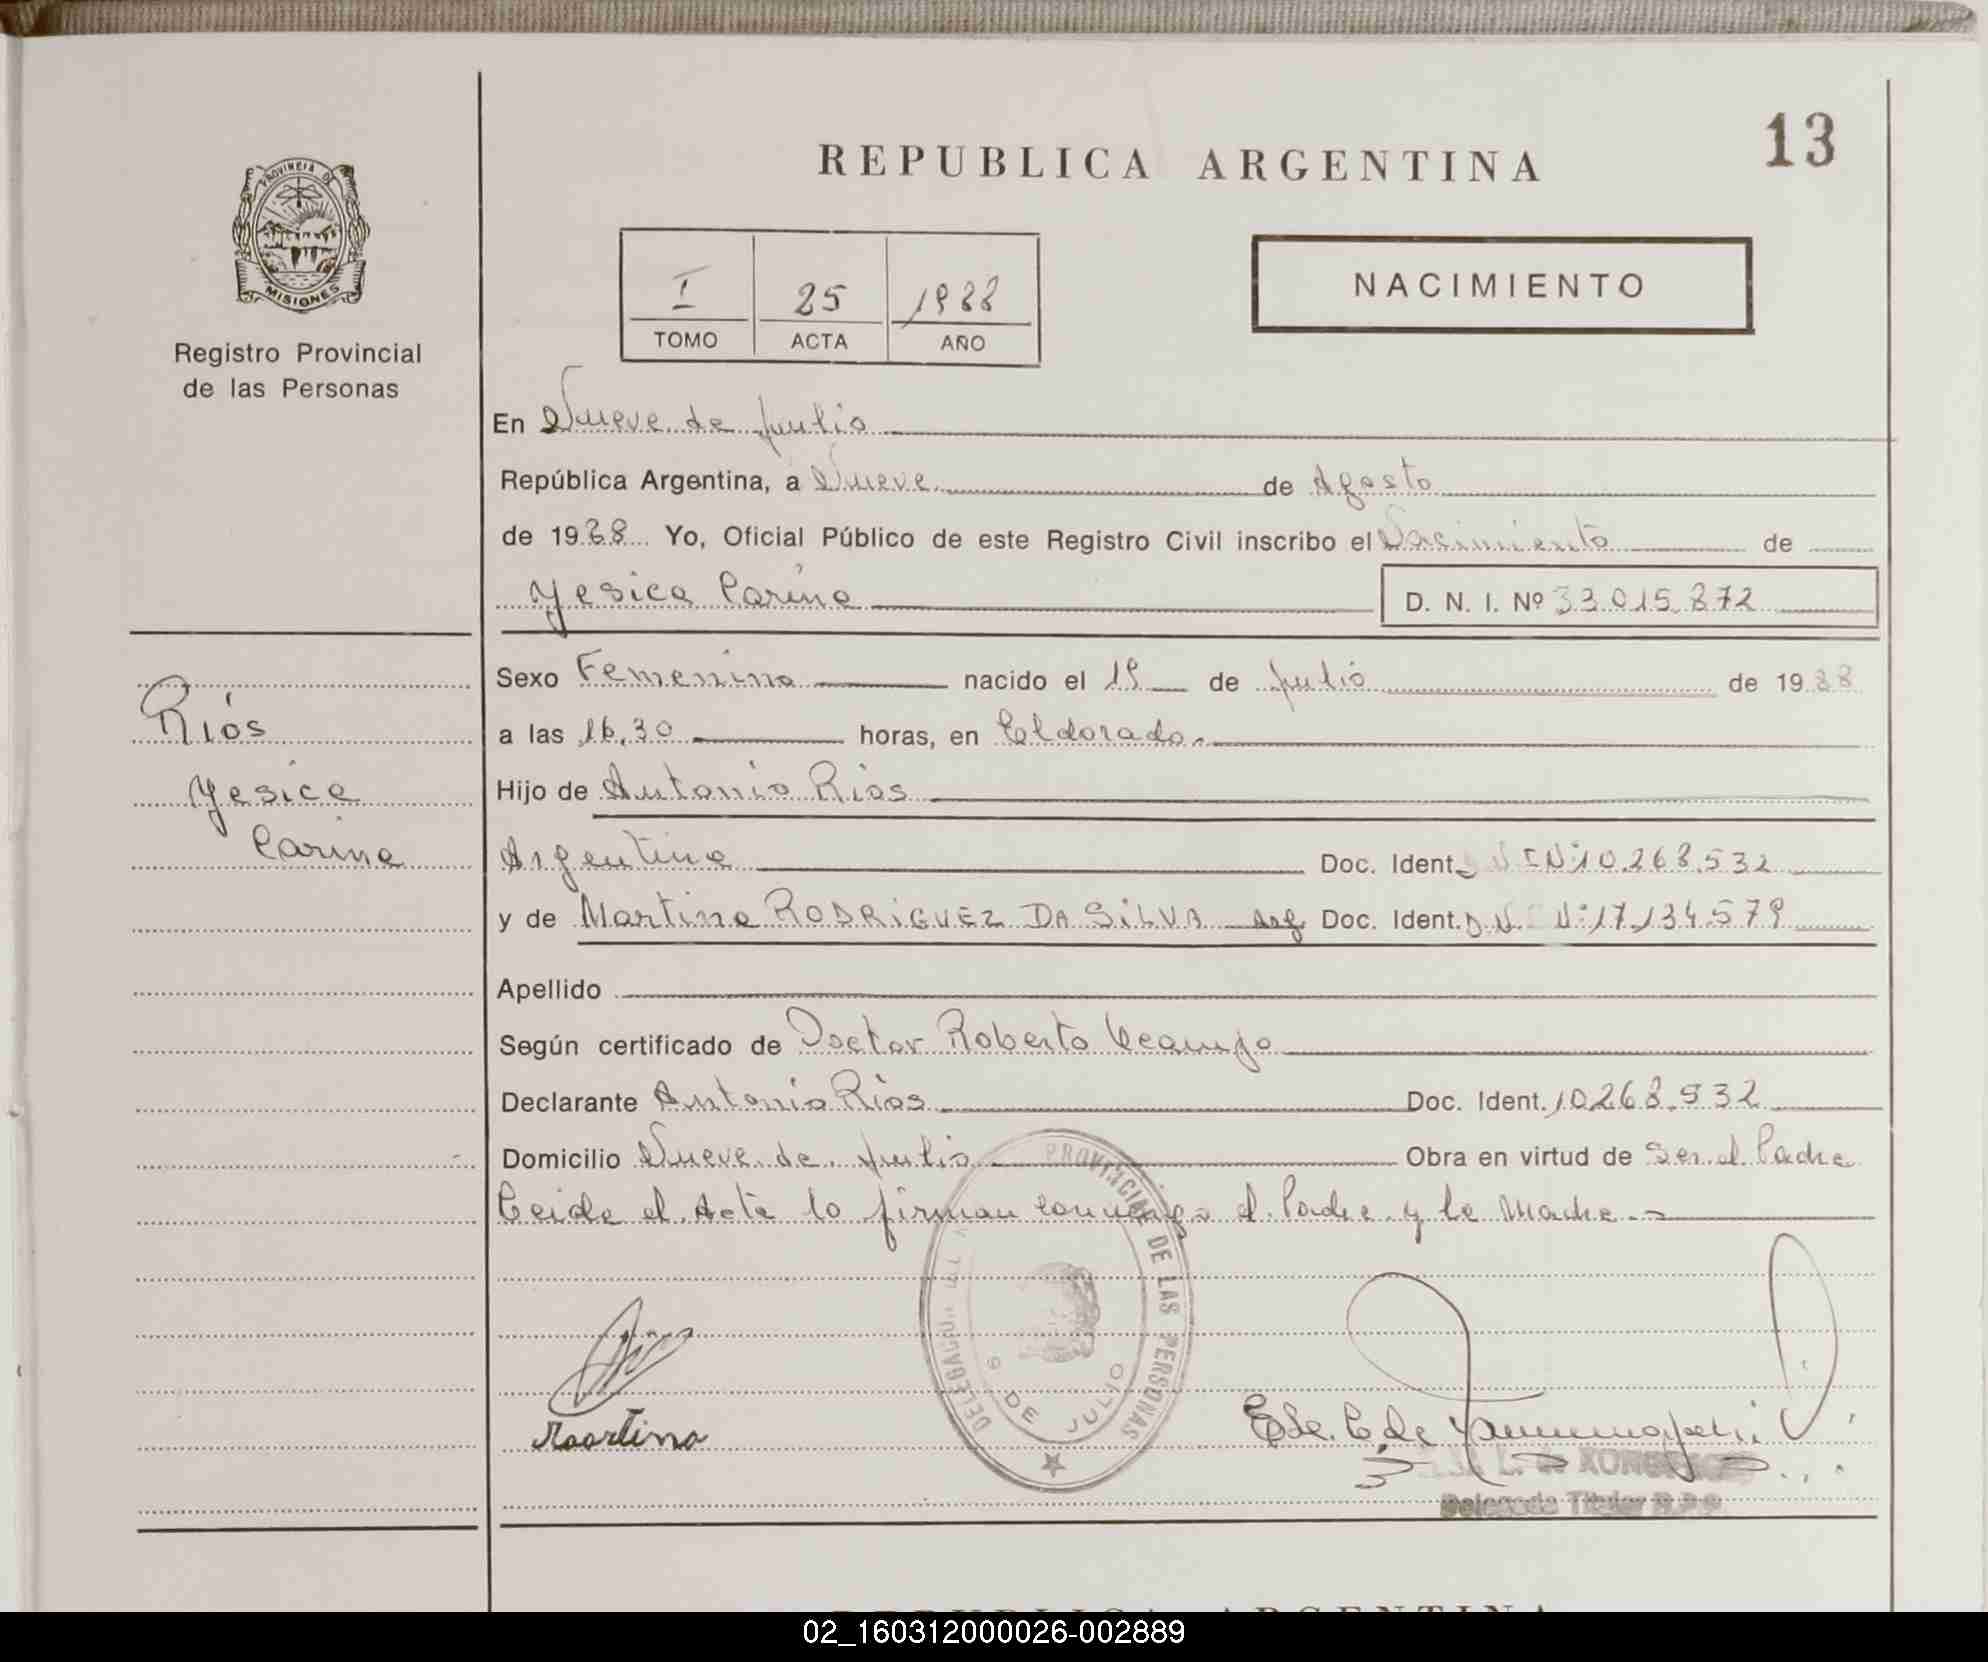 REPUBLICA ARGENTINA
13
PROVINCIA DE
MISIONES
Registro Provincial
de las Personas
I 25 1988
TOMO ACTA AÑO
NACIMIENTO
En Nueve de Julio
República Argentina, a Nueve de Agosto
de 1988 Yo, Oficial Público de este Registro Civil inscribo el Nacimiento de
Yesica Carina D. N. I. Nº 33.015.872
Sexo Femenino nacido el 19 de Julio de 1988
a las 16,30 horas, en Eldorado.
Hijo de Antonio Rios
Argentino Doc. Ident. D N I Nº 10.268.532
y de Martina RODRIGUEZ DA SILVA Arg Doc. Ident. D.N. Nº 17.134.579
Apellido
Según certificado de Doctor Roberto
Declarante Antonio Rios Doc. Ident. 10268.532
Domicilio Nueve de Julio Obra en virtud de Ser el Padre
Leida el Acta lo firman conmigo el Padre y la Madre.-
Ríos
Yesica
Carina
PROVINCIAL DE LAS PERSONAS
DELEGACION DEL
9 DE JULIO
Martina
Delegada Titular R.P.P.
REPUBLICA ARGENTINA
02_160312000026-002889